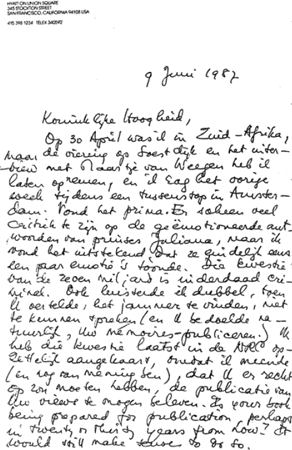 HYATT ON UNION SQUARE
345 STOCKTON STREET
SAN FRANCISCO, CALIFORNIA 94108 USA
415 398 1234 TELEX 340592
9 Juni 1987
Koninklijke Hoogheid,
Op 30 April was ik in Zuid-Afrika,
maar de viering op Soestdijk en het inter-
view met Maartje van Weegen heb ik
laten opnemen, en ik zag het vorige
week tijdens een tussenstop in Amster-
dam. Vond het prima. Er scheen veel
critiek te zijn op de geëmotioneerde ant-
woorden van prinses Juliana, maar ik
vond het uitstekend dat ze eindelijk eens
een paar emotie's toonde. Die kwestie
van de zeven miljard is inderdaad cri-
mineel. Ook luisterde ik dubbel, toen
U vertelde het jammer te vinden, niet
te kunnen spreken (en U bedoelde na-
tuurlijk, Uw mémoires-publiceren). Ik
heb die kwestie laatst in de NRC op-
zettelijk aangekaart, omdat ik meende
(en nog van mening ben), dat U er recht
op zou moeten hebben, de publicatie van
Uw views te mogen beleven. Is your book
being prepared for publication, perhaps
in twenty or thirty years from now? It
would still make sense to do so.